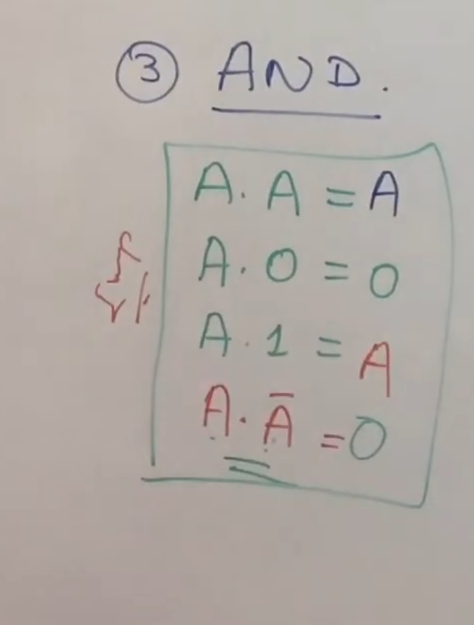 ③ AND.
A. A = A
A. 0 = 0
A. 1 = A
A. Ā = 0